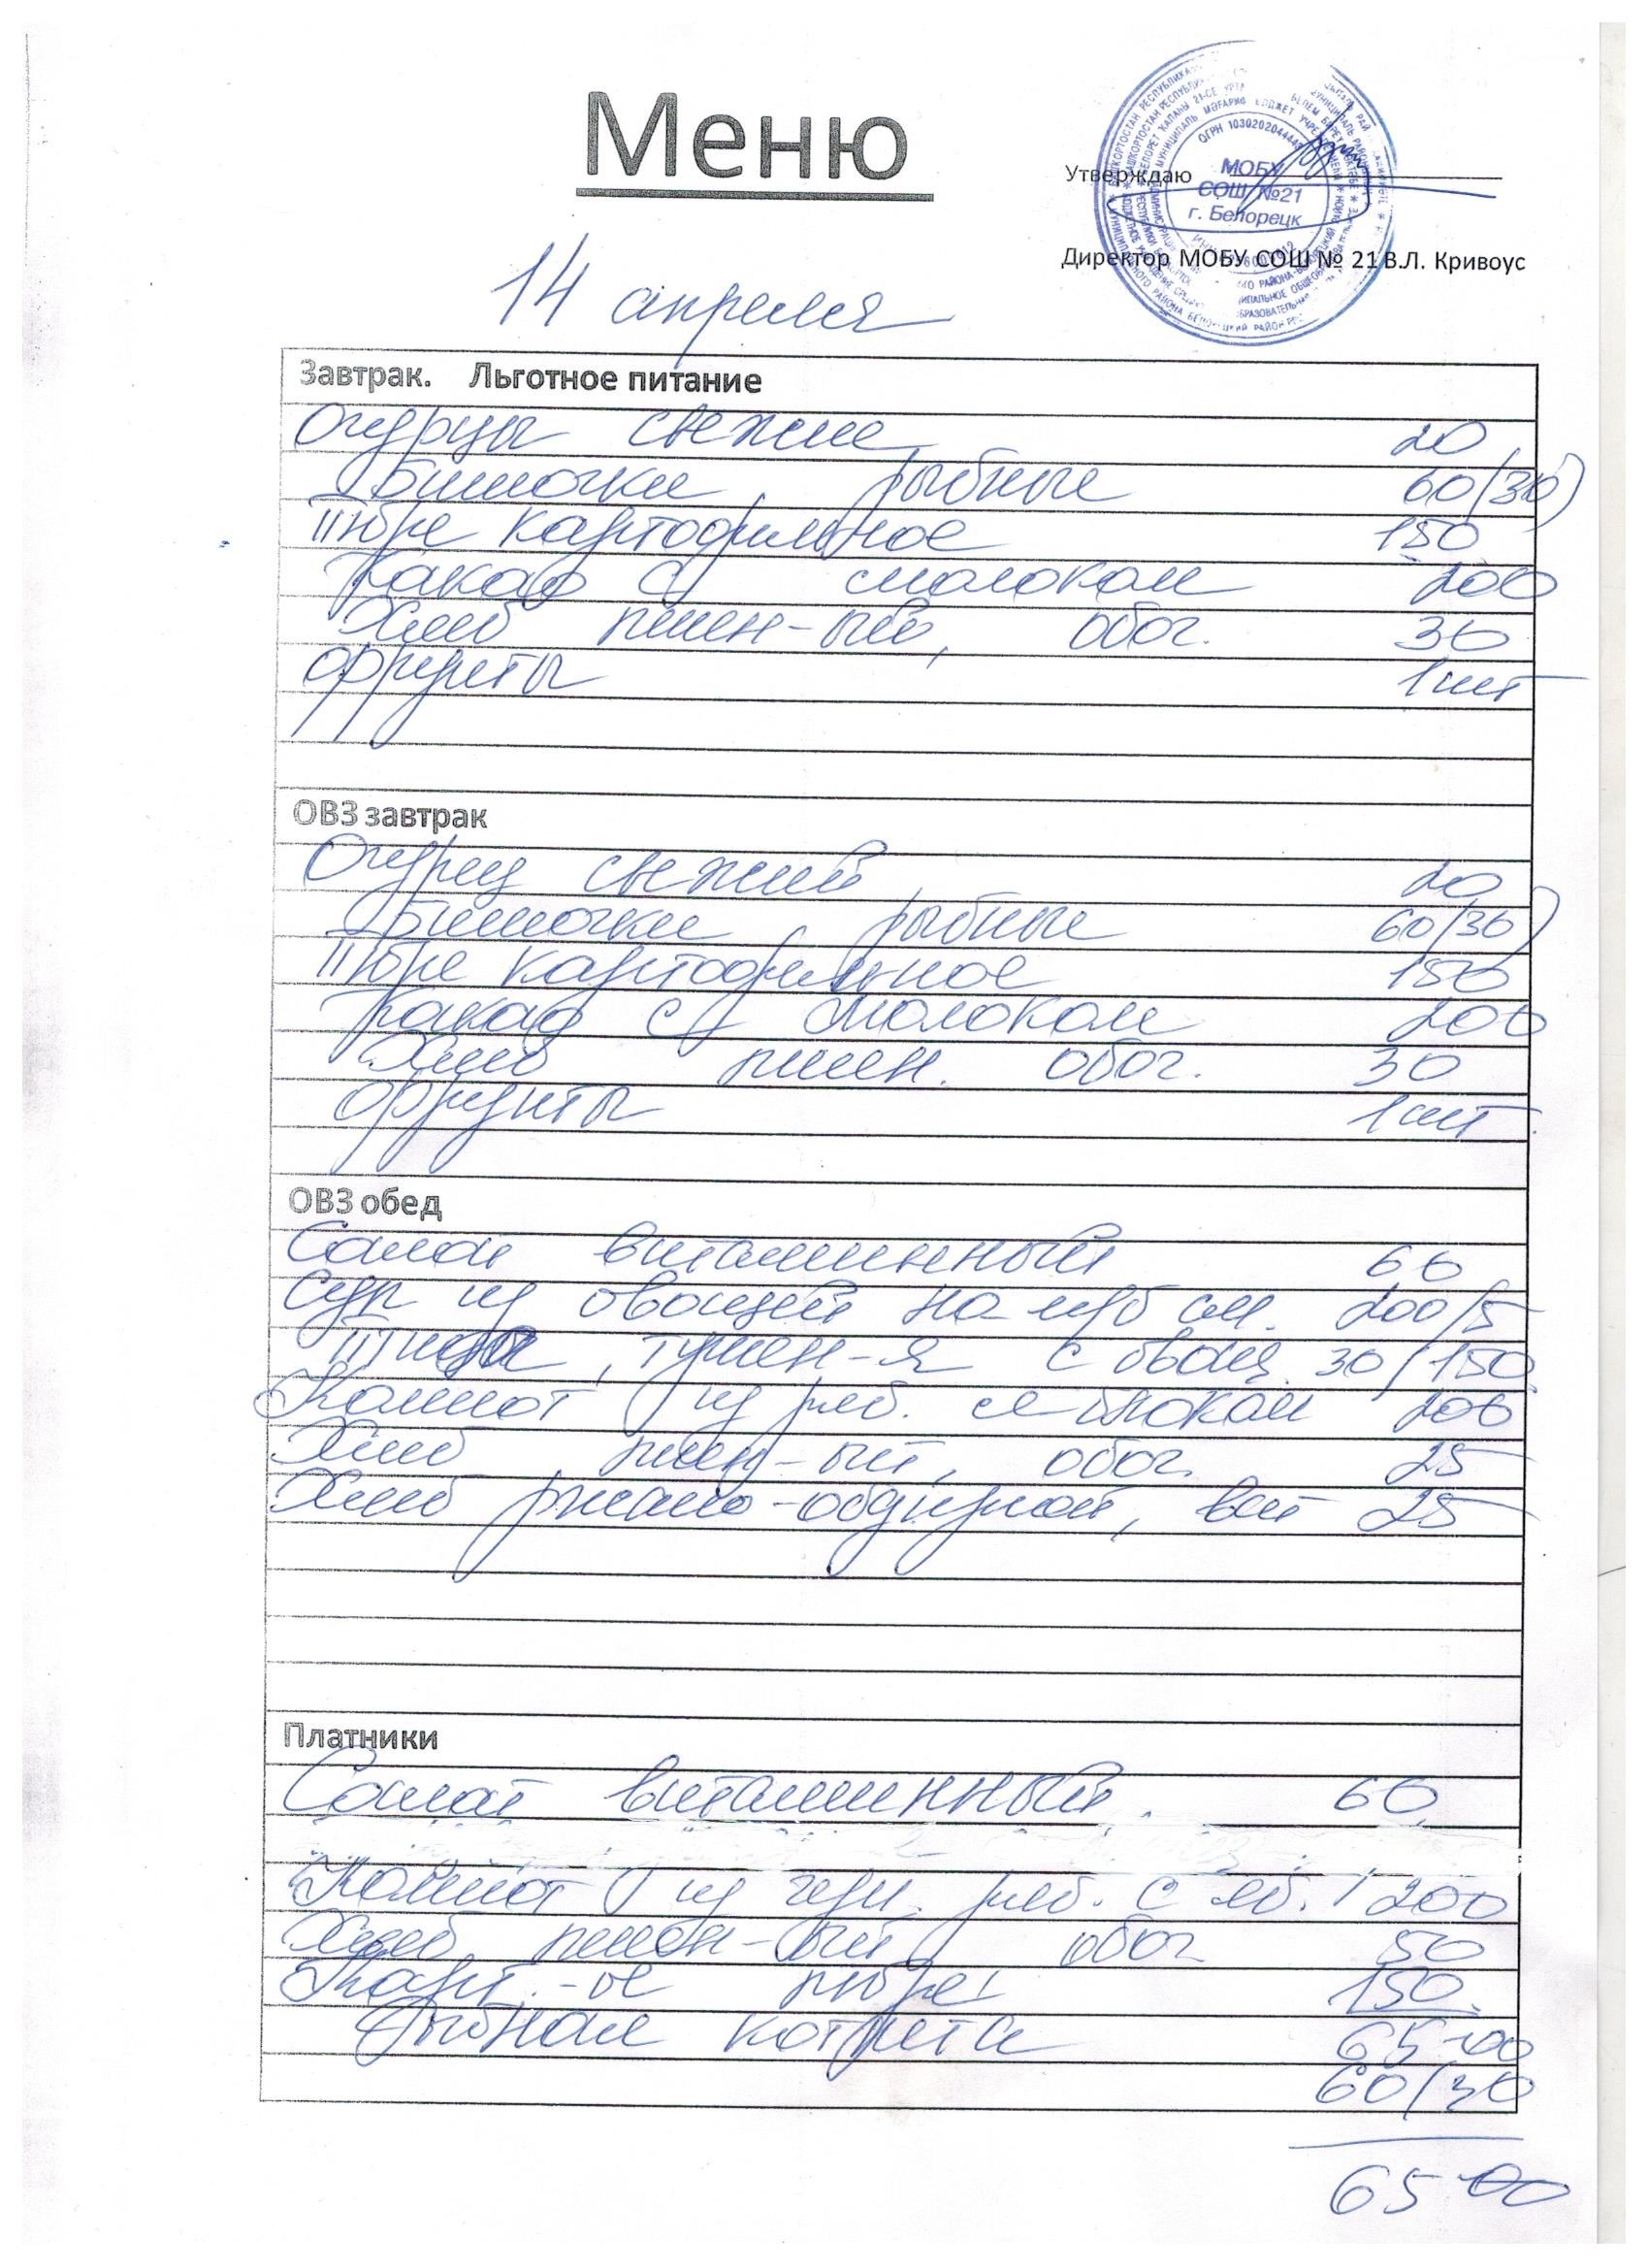 Меню
Утверждаю
МОБУ
СОШ №21
г. Белорецк
Директор МОБУ СОШ № 21 В.Л. Кривоус
14 апреля
Завтрак. Льготное питание
Огурцы свежие 20
Биточки рыбные 60/30
Пюре картофельное 150
Какао с молоком 200
Хлеб пшен-ый, обог. 30
Фрукты 1 шт
ОВЗ завтрак
Огурец свежий 20
Биточки рыбные 60/30
Пюре картофельное 150
Какао с молоком 200
Хлеб пшен. обог. 30
Фрукты 1 шт.
ОВЗ обед
Салат витаминный 60
Суп из овощей на мб см. 200/5
Птица, тушен-я с овощ. 30/150
Компот из яб. 200
Хлеб пшен-ый, обог. 25
Хлеб ржано-обдирной, вит 25
Платники
Салат витаминный. 60
Компот из с яб. 200
Хлеб пшен-ый обог 50
Карт.-ое пюре 150
Рыбная котлета 65-00
60/30
65-00